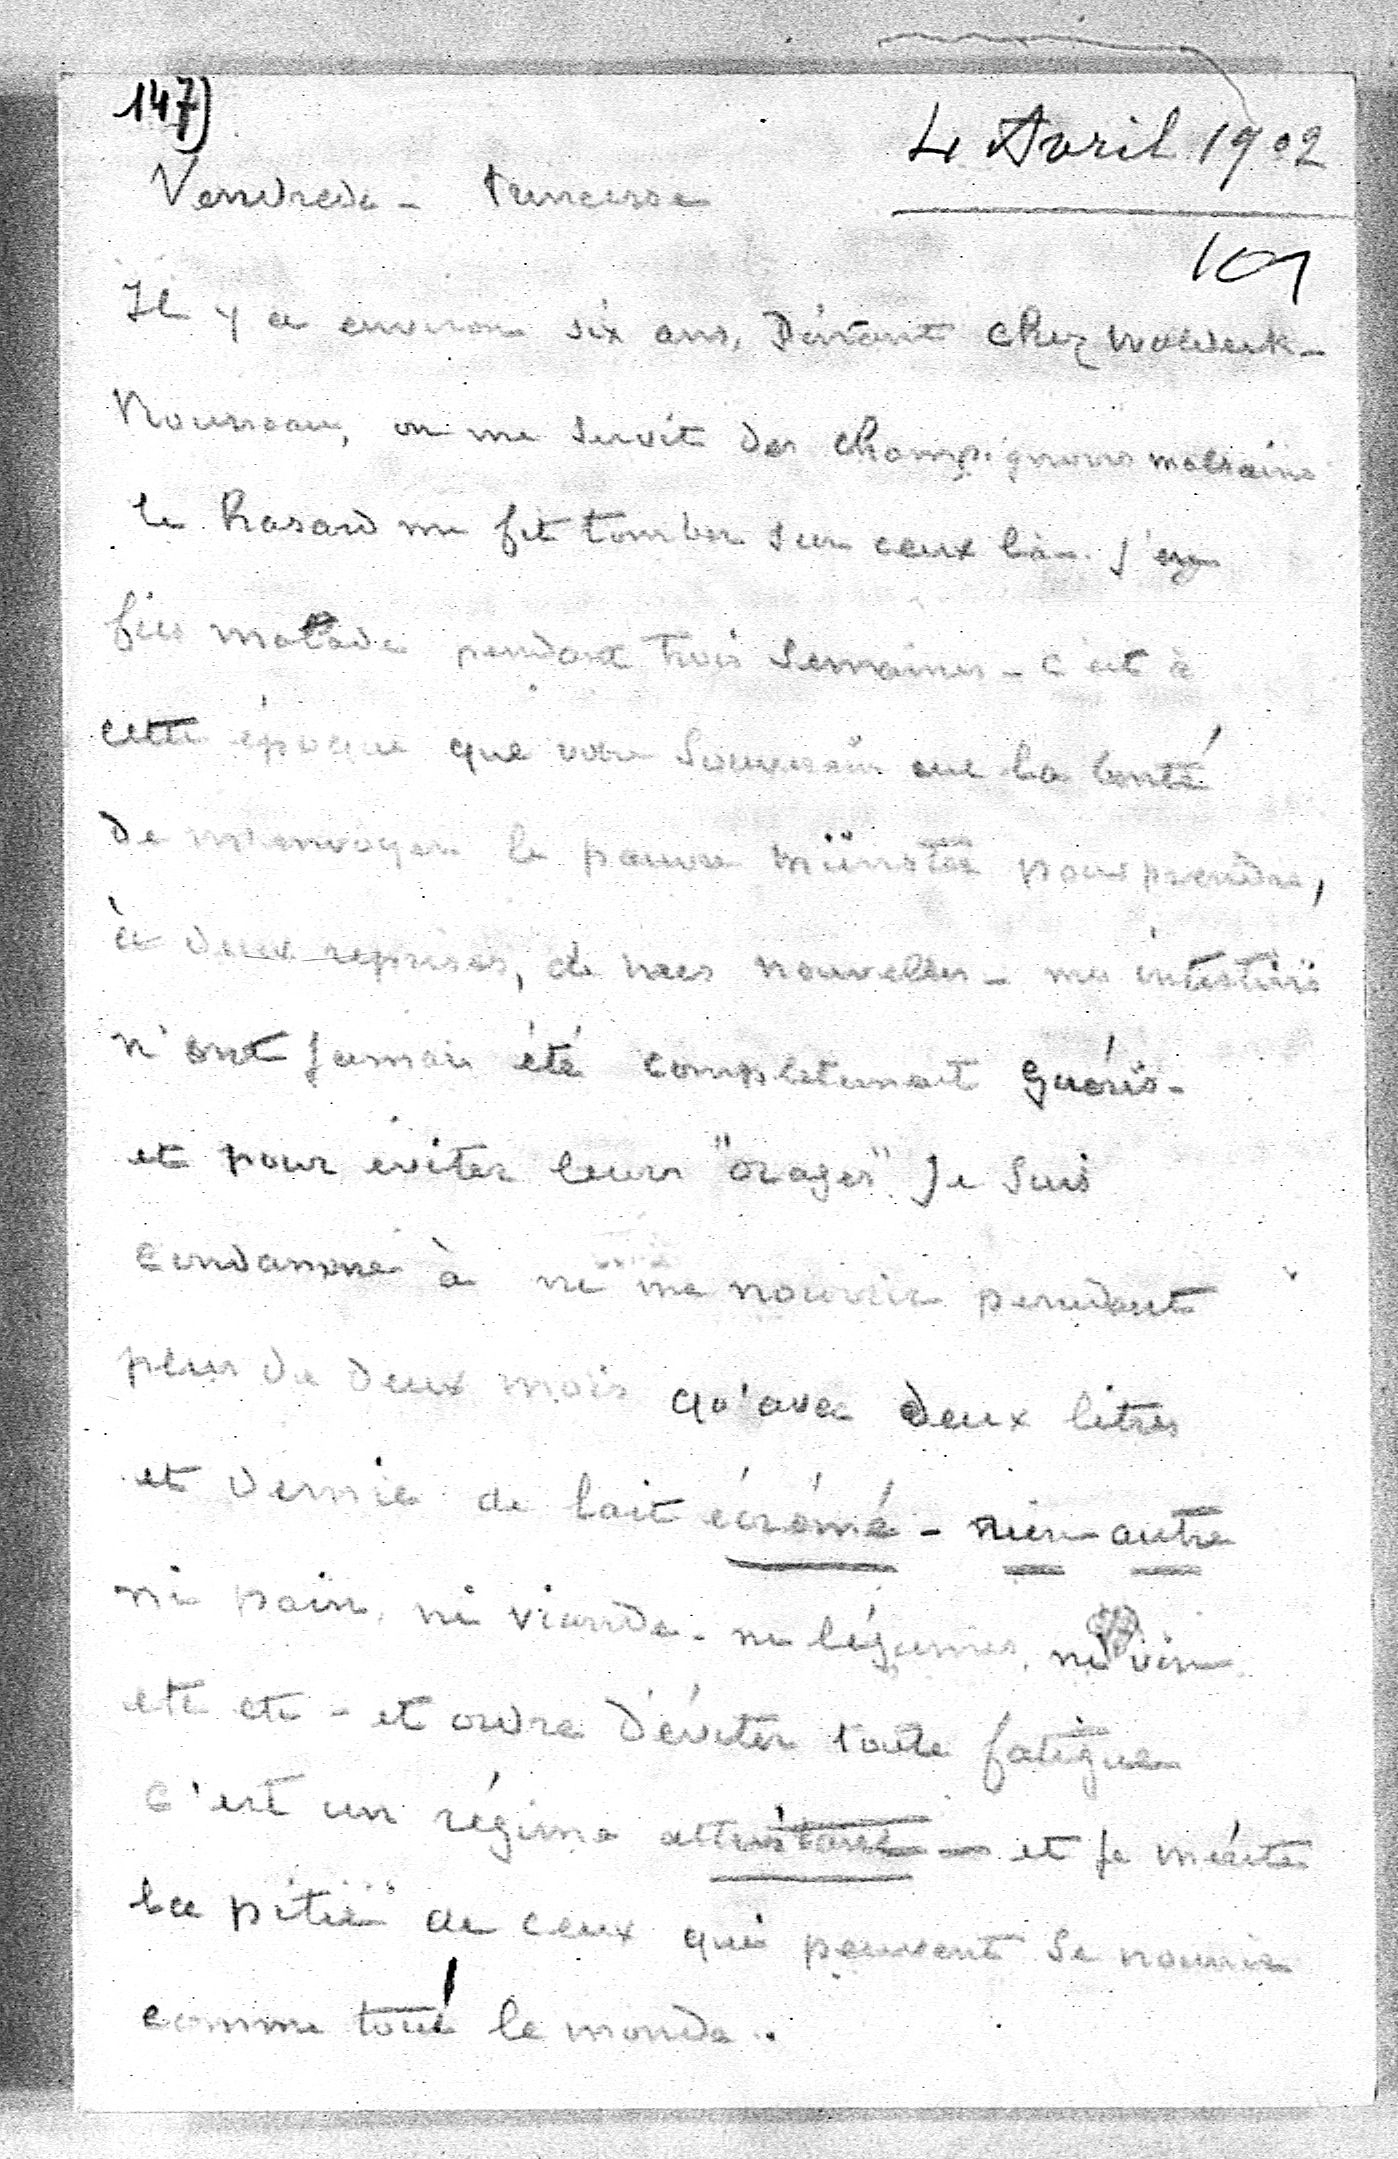 147)
4 Avril 1902
Vendredi - Princesse
101
Il y a environ six ans, Dinant chez Waldeck-
Rousseau, on me servit des champignons malsains
le hasard me fit tomber sur ceux là - j'en
fus malade pendant trois semaines - c'est à
cette époque que votre Souverain eut la bonté
De m'envoyer le pauvre Münster pour prendre,
à deux reprises, de mes nouvelles - mes intestins
n'ont jamais été completement guéris -
et pour éviter leurs "orages" je suis
condamné à ne me nourrir pendant
plus de deux mois qu'avec deux litres
et demie de lait écrémé - rien autre
ni pain, ni viande - ni légumes, ni vin
etc etc - et ordre d'éviter toute fatigue
C'est un régime attristant - et je mérite
la pitié de ceux qui peuvent se nourrir
comme tout le monde..